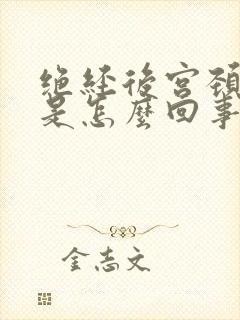 绝经后宫颈
是怎麼回事
金志文